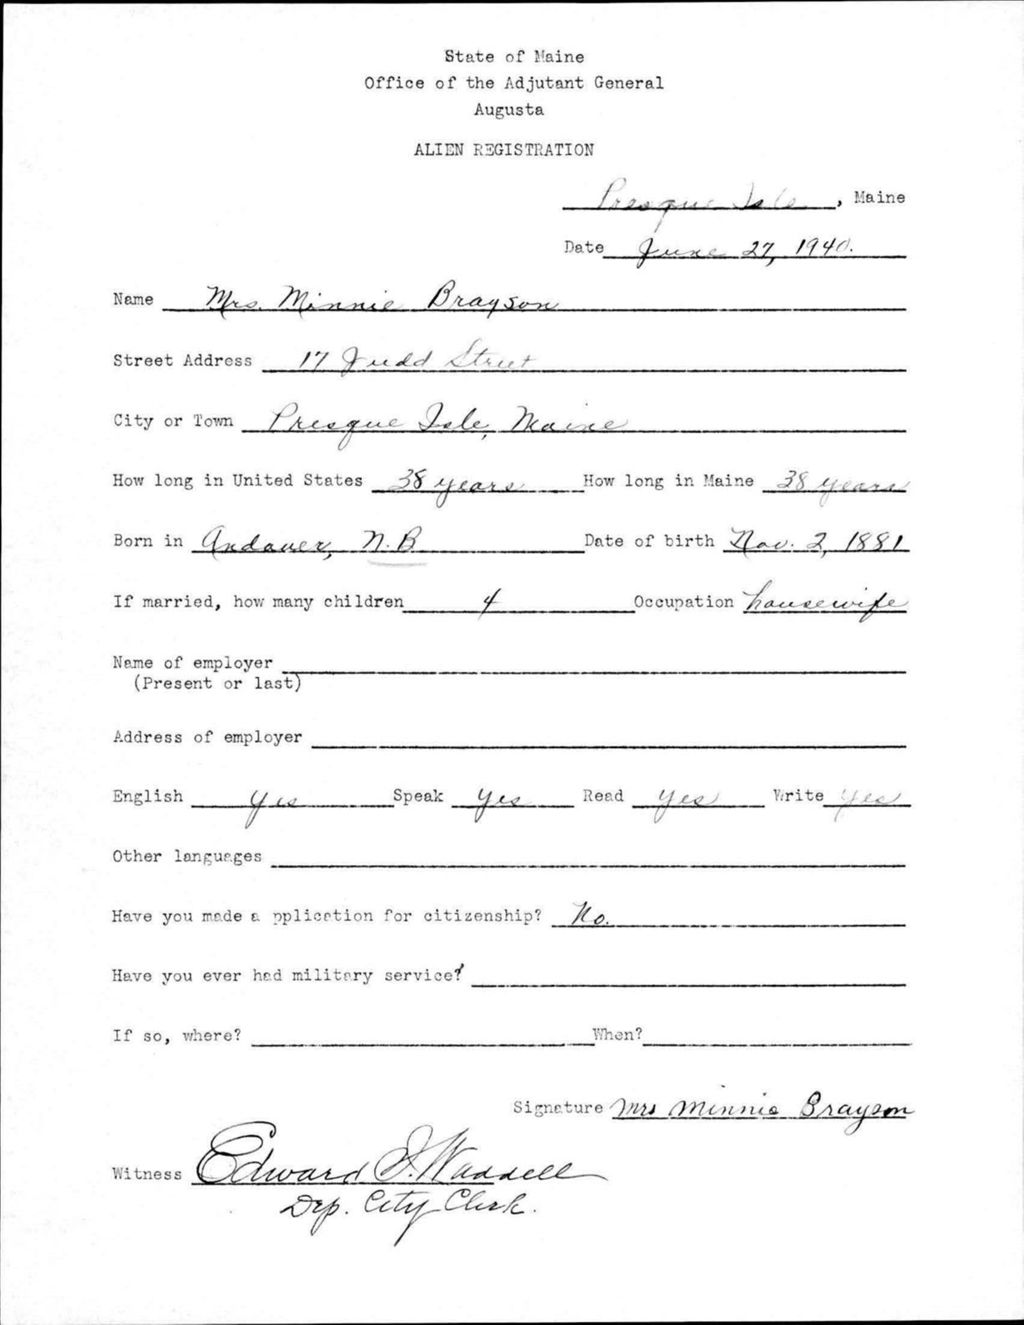 State of Maine
Office of the Adjutant General
Augusta
ALIEN REGISTRATION
Presque Isle, Maine
Date June 27, 1940.
Name Mrs. Minnie Brayson
Street Address 17 Judd Street
City or Town Presque Isle, Maine
How long in United States 38 years How long in Maine 38 years
Born in Andover, N.B Date of birth Nov. 2, 1881
If married, how many children 4 Occupation housewife
Name of employer
(Present or last)
Address of employer
English Yes Speak Yes Read Yes Write Yes
Other languages
Have you made a pplication for citizenship? No.
Have you ever had military service?
If so, where? When?
Signature Mrs Minnie Brayson
Witness Edward I. Waddell
Dep. City Clerk.